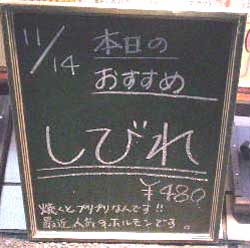 11/14
本日の
おすすめ
しびれ
¥480
焼くとプリプリなんです!!
最近人気のホルモンです。